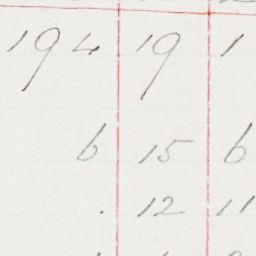 194 19 1
6 15 6
. 12 11